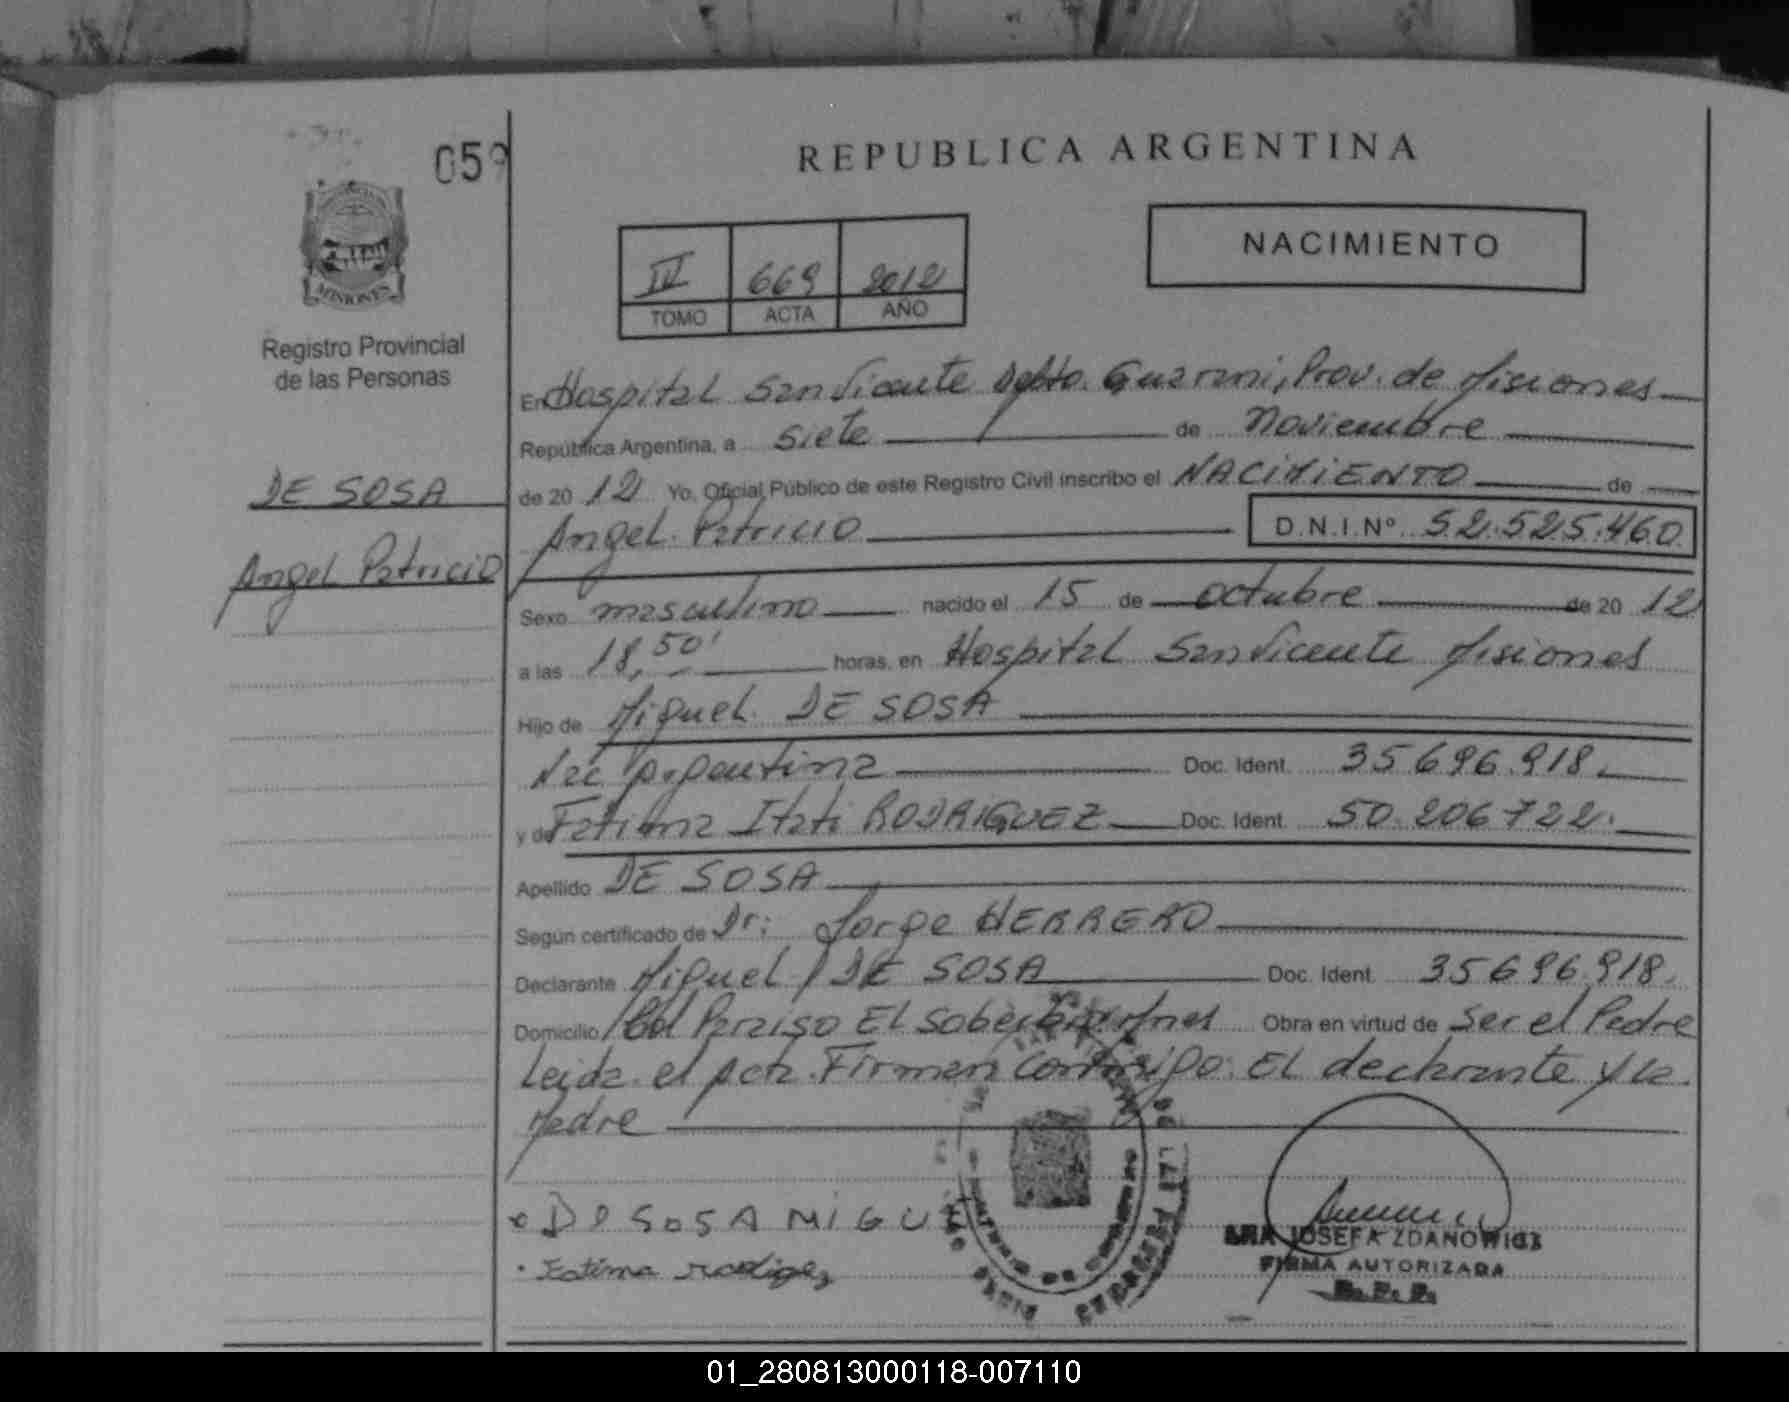 059
REPUBLICA ARGENTINA
NACIMIENTO
IV 669 2012
TOMO ACTA AÑO
MISIONES
Registro Provincial
de las Personas
DE SOSA
Angel Patricio
En Hospital San Vicente Dpto. Guarani, Prov. de Misiones
República Argentina, a siete de Noviembre
de 20 12 Yo, Oficial Público de este Registro Civil inscribo el NACIMIENTO de
Angel Patricio D.N.I.Nº 52.525.460
Sexo masculino nacido el 15 de octubre de 20 12
a las 18,50' horas, en Hospital San Vicente Misiones
Hijo de Miguel DE SOSA
Nac Argentina Doc. Ident. 35696918
y de Fatima Itati RODRIGUEZ Doc. Ident. 50.206722.
Apellido DE SOSA
Según certificado de Dr: Jorge HERRERO
Declarante Miguel DE SOSA Doc. Ident. 35696918.
Domicilio Col Paraiso El Soberbio Mnes Obra en virtud de ser el Padre
Leida el Acta Firman Conmigo: El declarante y la
Madre
DE SOSA MIGU
Fatima rodigez
JOSEFA ZDANOWICZ
FIRMA AUTORIZADA
R.P.P.
01_280813000118-007110